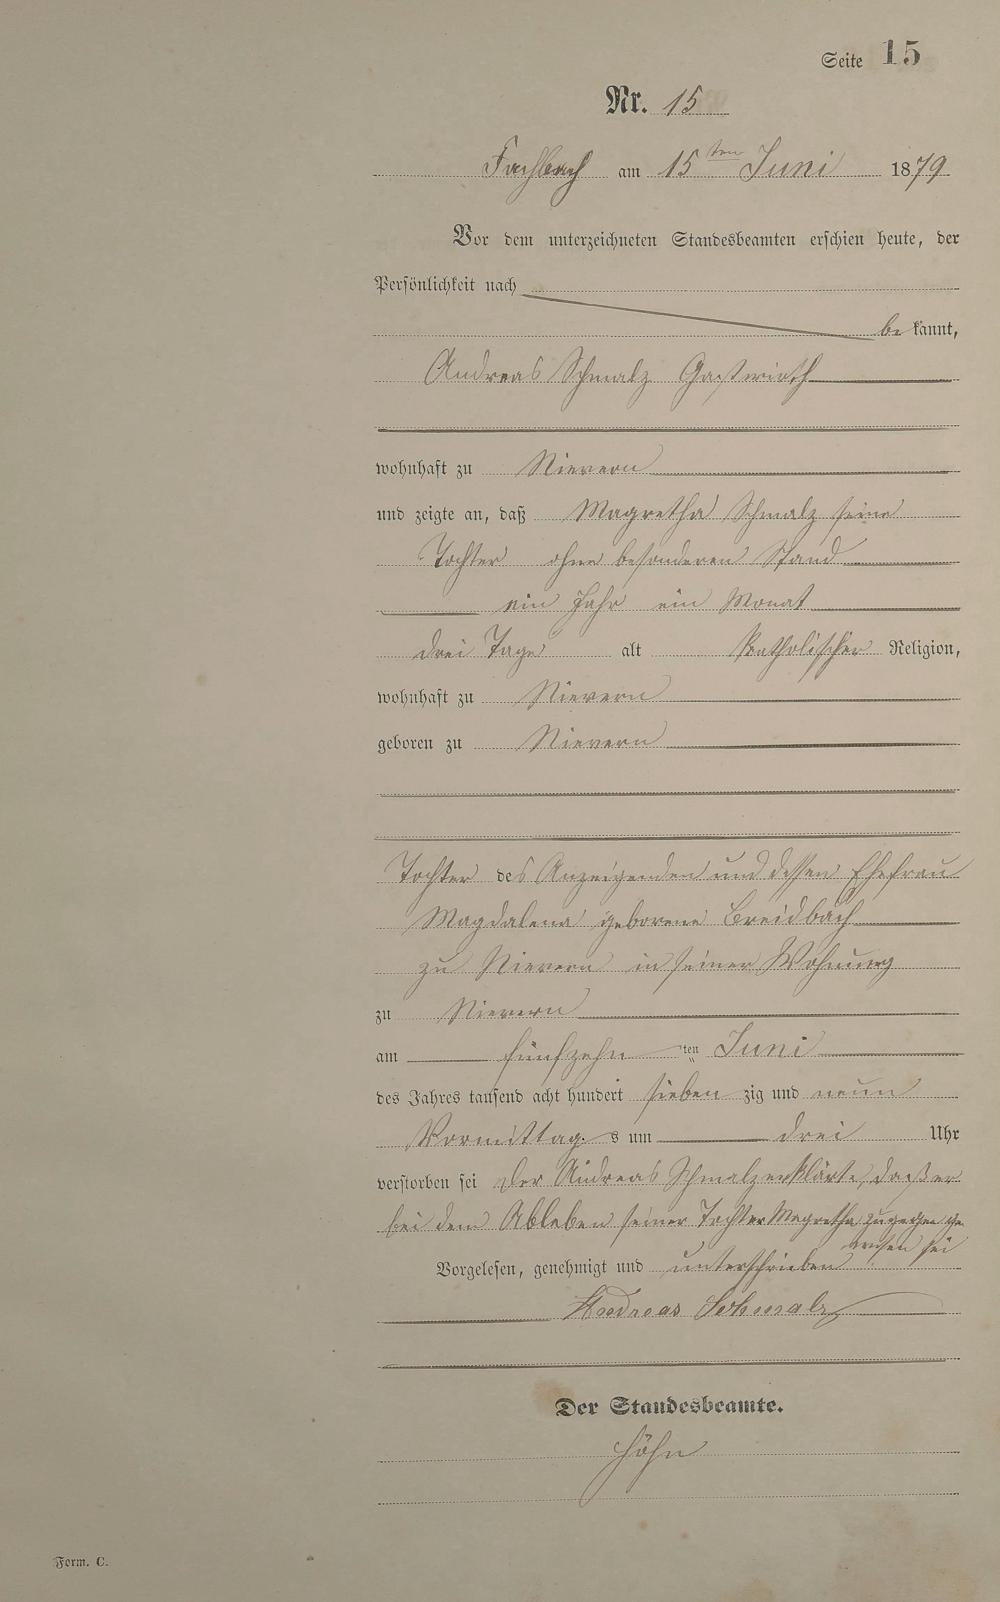 Seite 15
Nr. 15
Fachbach am 15ten Juni 1879
Vor dem unterzeichneten Standesbeamten erschien heute, der
Persönlichkeit nach
be kannt,
Andreas Schmalz Gastwirth
wohnhaft zu Nievern
und zeigte an, daß Magretha Schmalz seine
Tochter ohne besonderen Stand
ein Jahr ein Monat
drei Tage alt katholischer Religion,
wohnhaft zu Nievern
geboren zu Nievern
Tochter des Anzeigenden und dessen Ehefrau
Magdalena geborene Breidbach
zu Nievern in seiner Wohnung
zu Nievern
am fünfzehn ten Juni
des Jahres tausend acht hundert sieben zig und neun
Vormittag s um drei Uhr
verstorben sei der Andreas Schmalz erklärte, daß er
bei dem Ableben seiner Tochter Magretha zugegen ge
wesen sei
Vorgelesen, genehmigt und unterschrieben
Andreas Schmalz
Der Standesbeamte.
Höhn
Form. C.